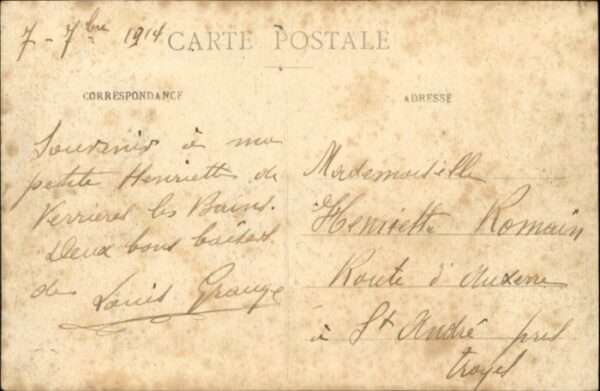 7 - 7bre 1914
CARTE POSTALE
CORRESPONDANCE
Souvenir à ma
petite Henriette de
Verrieres les Bains.
Deux bons baisers
de Louis Grange
ADRESSE
Mademoiselle
Henriette Romain
Route d'Auxerre
à St André près
troyes